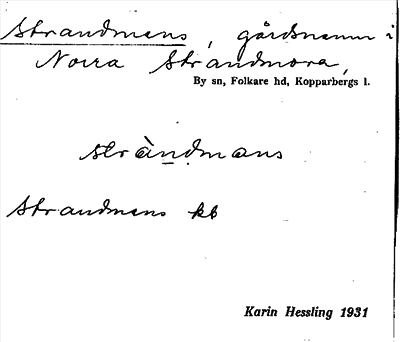 Strandmans, gårdsnamn i
Norra Strandmora,
By sn, Folkare hd, Kopparbergs l.
stràn̠dmans
Strandmans kb
Karin Hessling 1931